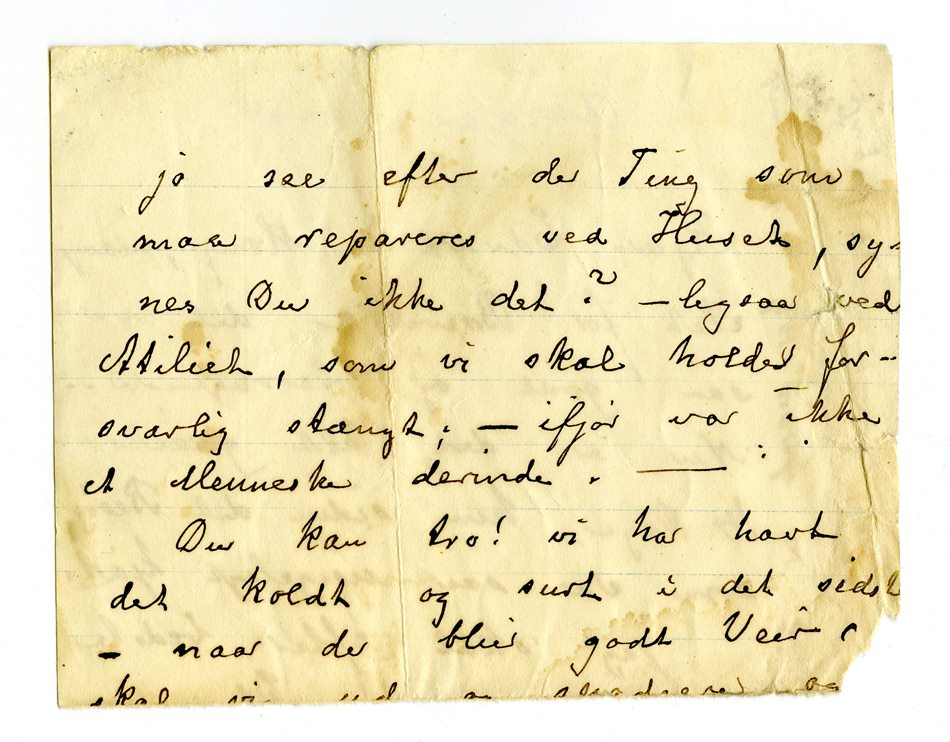 jo see efter de Ting som
maa repareres ved Huset, sy-
nes Du ikke det? – legsaa ved
Atiliet, som vi skal holde for-
svarlig stængt; – ifjor var ikke
et Menneske derinde. —
Du kan tro! vi har havt
det koldt og surt i det sidst
– naar de blir godt Veir
skal vi ud og og